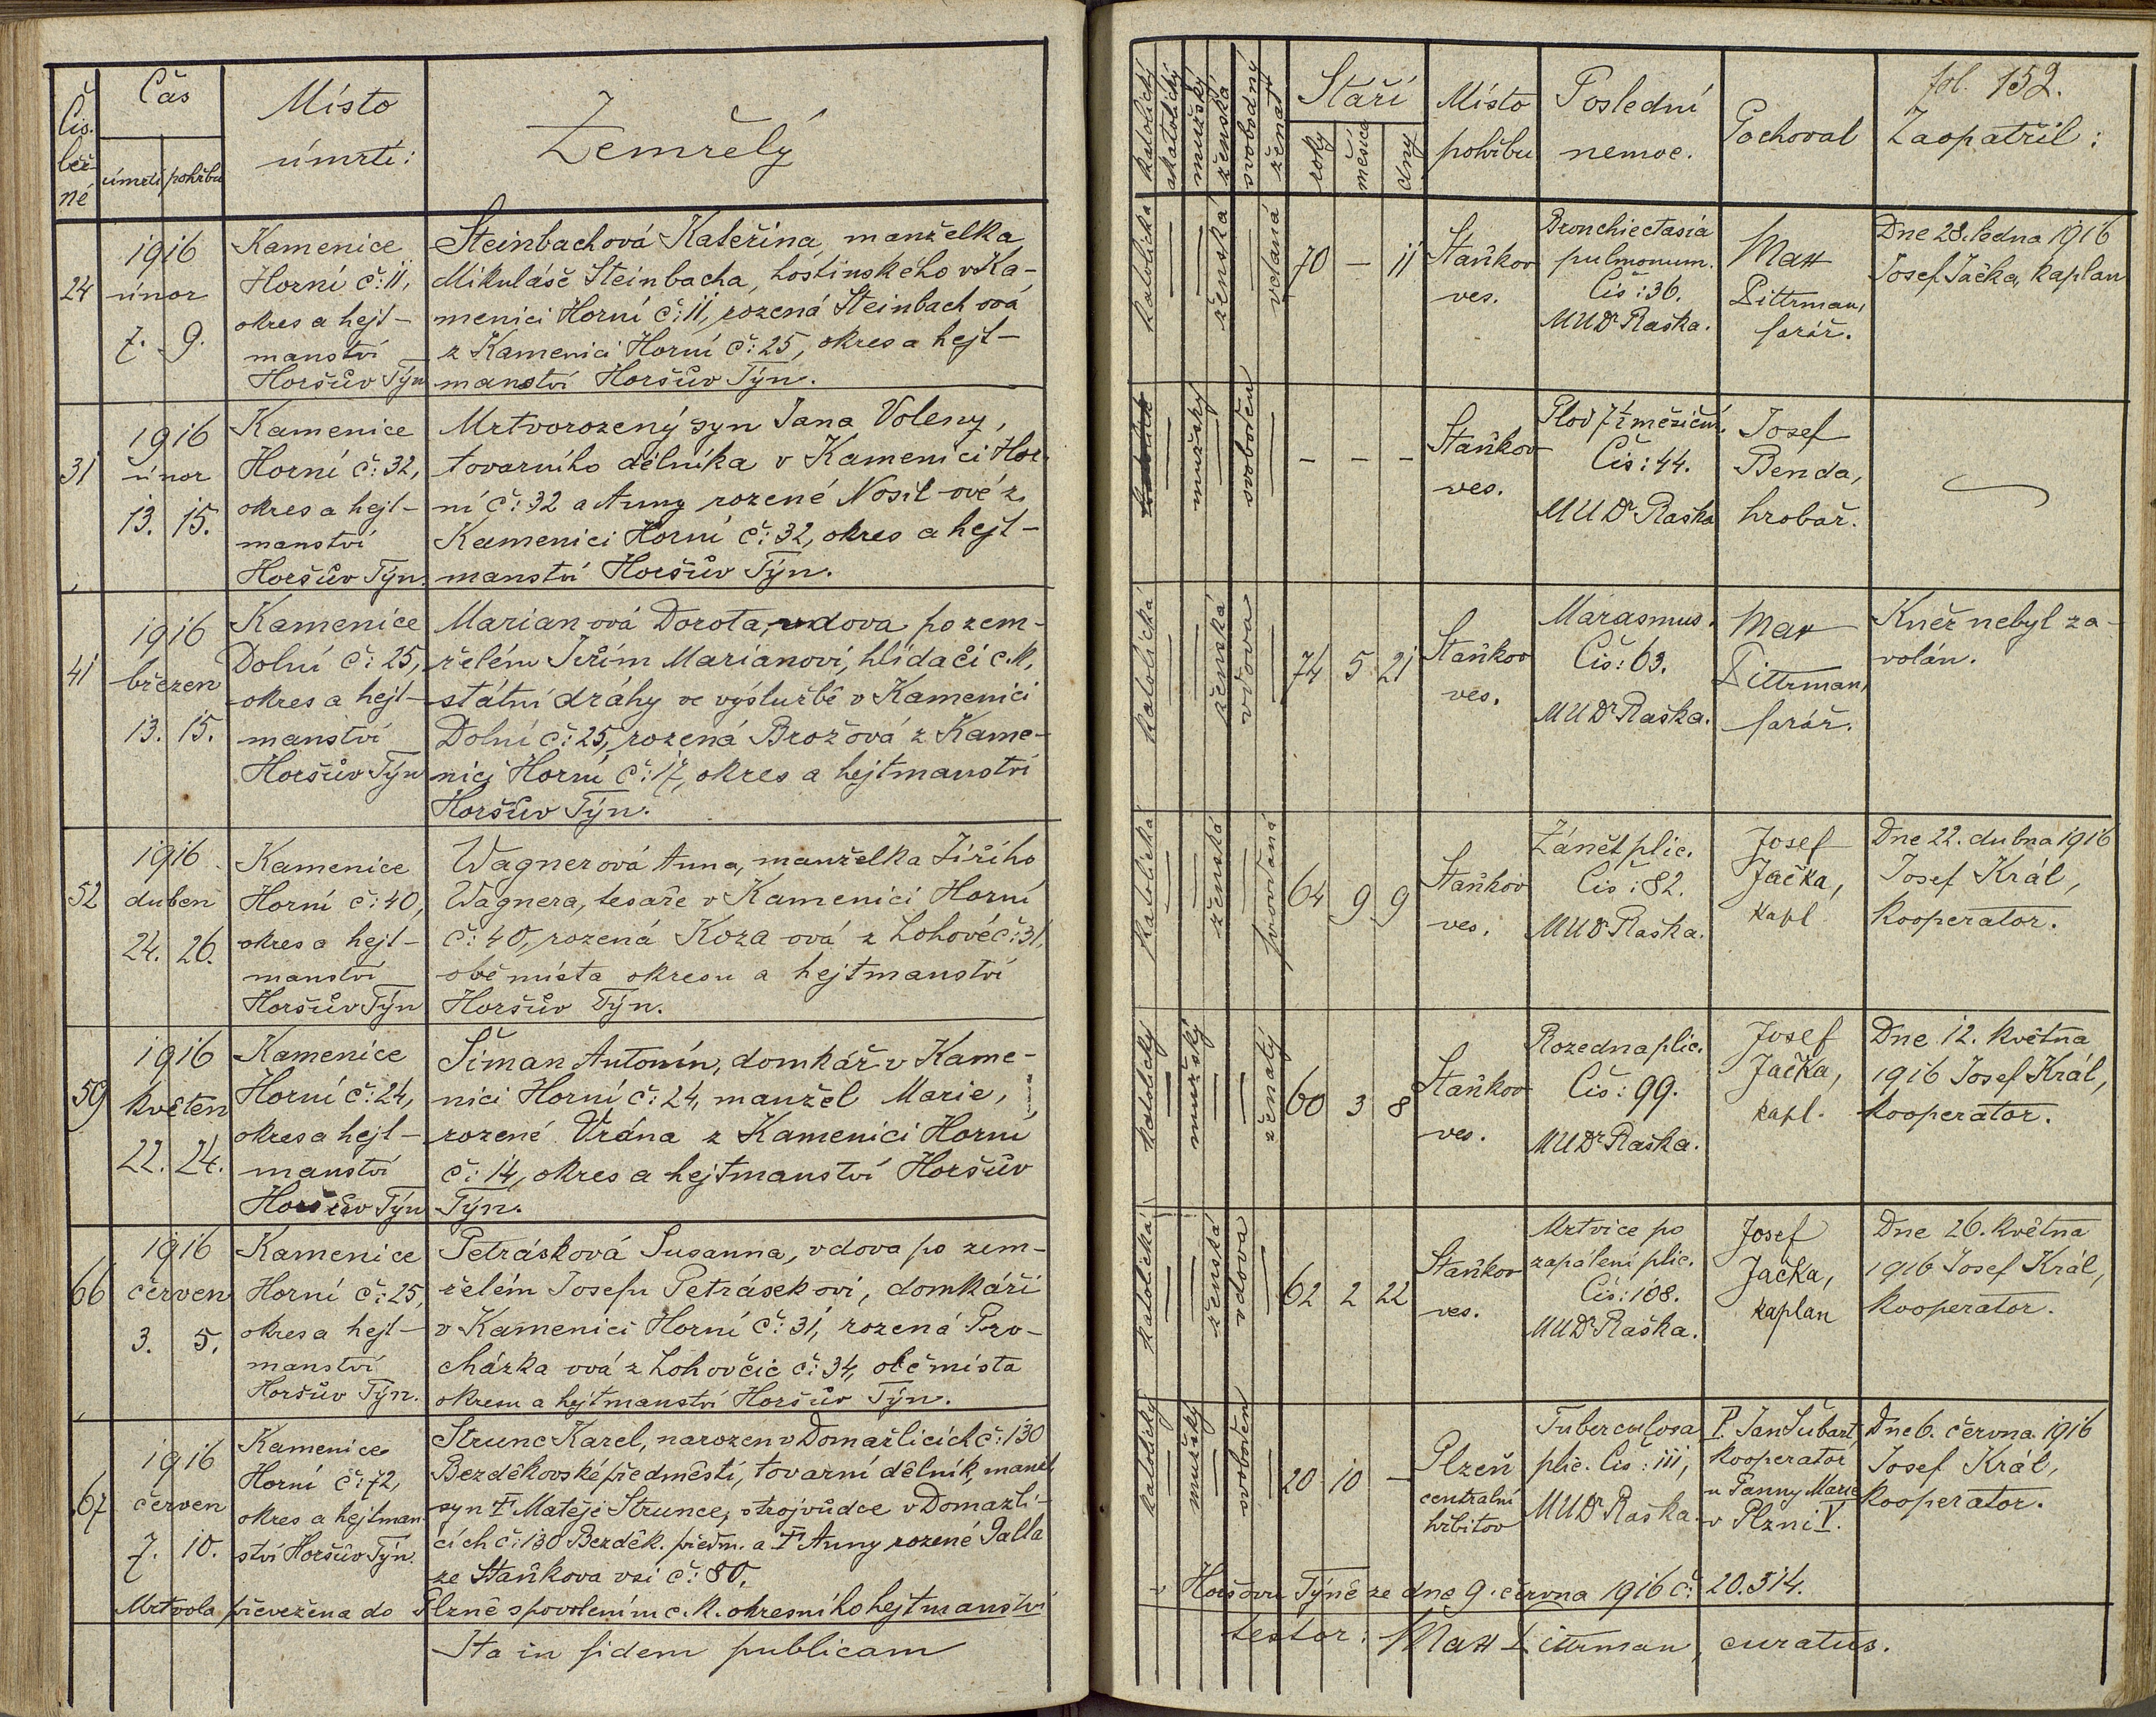 Čís.
běž-
né
Čas
úmrtí pohřbu
Místo
úmrtí:
Zemřelý
24
1916
únor
7. 9.
Kamenice
Horní č: 11,
okres a hejt-
manství
Horšův Týn
Steinbachová Kateřina, manželka
Mikuláše Steinbacha, hostinského v Ka-
menici Horní č: 11, rozená Steinbach ová
z Kamenici Horní č: 25, okres a hejt-
manství Horšův Týn.
31
1916
únor
13. 15.
Kamenice
Horní č: 32,
okres a hejt-
manství
Horšův Týn.
Mrtvorozený syn Jana Voleny,
tovarního dělníka v Kamenici Hor-
ní č: 32 a Anny rozené Nosil-ové z
Kamenici Horní č: 32, okres a hejt-
manství Horšův Týn.
41
1916
březen
13. 15.
Kamenice
Dolní č: 25,
okres a hejt-
manství
Horšův Týn
Marian ová Dorota, vdova po zem-
řelém Jiřím Marianovi, hlídači c.k.
státní dráhy ve výslužbě v Kamenici
Dolní č: 25, rozená Brož ová z Kame-
nici Horní č: 17, okres a hejtmanství
Horšův Týn.
52
1916
duben
24. 26.
Kamenice
Horní č: 40,
okres a hejt-
manství
Horšův Týn
Wagnerová Anna, manželka Jiřího
Wagnera, tesaře v Kamenici Horní
č: 40, rozená Koza ová z Lohové č: 31,
obě místa okresu a hejtmanství
Horšův Týn.
59
1916
květen
22. 24.
Kamenice
Horní č: 24,
okres a hejt-
manství
Horšův Týn
Šíman Antonín, domkář v Kame-
nici Horní č: 24, manžel Marie,
rozené Vrána z Kamenici Horní
č: 14, okres a hejtmanství Horšův
Týn.
66
1916
červen
3. 5.
Kamenice
Horní č: 25,
okres a hejt-
manství
Horšův Týn.
Petrásková Susanna, vdova po zem-
řelém Josefu Petrásek ovi, domkáři
v Kamenici Horní č: 31, rozená Pro-
cházka ová z Lohovčic č: 34, obě místa
okresu a hejtmanství Horšův Týn.
67
1916
červen
7. 10.
Kamenice
Horní č: 72,
okres a hejtman-
ství Horšův Týn.
Strunc Karel, narozen v Domažlicích č: 130
Bezděkovské předměstí, tovarní dělník, manžel.
syn † Matěje Strunce, strojvůdce v Domažli-
cích č: 130 Bezděk. předm. a † Anny rozené Palla
ze Staňkova vsi č: 80.
Mrtvola převežena do Plzně s povolením c.k. okresního hejtmanství
Ita in fidem publicam
fol. 152.
katolický
akatolický
mužský
ženská
svobodný
ženat
Stáří
roky
měsíce
dny
Místo
pohřbu
Poslední
nemoc.
Pochoval
Zaopatřil:
katolická
ženská
vdaná
70 — 11
Staňkov
ves.
Bronchiectasia
pulmonum.
Čís: 36.
MUDr Raška.
Max
Dittrman,
farář.
Dne 28. ledna 1916
Josef Jačka, kaplan
mužský
svoboden
— — —
Staňkov
ves.
Plod 7½ měsíční.
Čís: 44.
MUDr Raška
Josef
Benda,
hrobař.
katolická
ženská
vdova
74 5 21
Staňkov
ves.
Marasmus.
Čís: 63.
MUDr Raška.
Max
Dittrman,
farář.
Kněz nebyl za-
volán.
katolická
ženská
provdaná
64 9 9
Staňkov
ves.
Zánět plic.
Čís: 82.
MUDr Raška.
Josef
Jačka,
kapl.
Dne 22. dubna 1916
Josef Král,
kooperator.
katolický
mužský
ženatý
60 3 8
Staňkov
ves.
Rozedna plic.
Čís: 99.
MUDr Raška.
Josef
Jačka,
kapl.
Dne 12. května
1916 Josef Král,
kooperator.
katolická
ženská
vdova
62 2 22
Staňkov
ves.
Mrtvice po
zapálení plic.
Čís: 108.
MUDr Raška.
Josef
Jačka,
kaplan
Dne 26. května
1916 Josef Král,
kooperator.
katolický
mužský
svoboden
20 10 —
Plzeň
centralní
hřbitov
Tuberculosa
plic. Čís: 111,
MUDr Raška.
P. Jan Šubart,
kooperator
u Panny Marie
v Plzni V.
Dne 6. června 1916
Josef Král,
kooperator.
v Horšovu Týně ze dne 9. června 1916 č: 20.514.
testor: Max Dittrman, curatus.